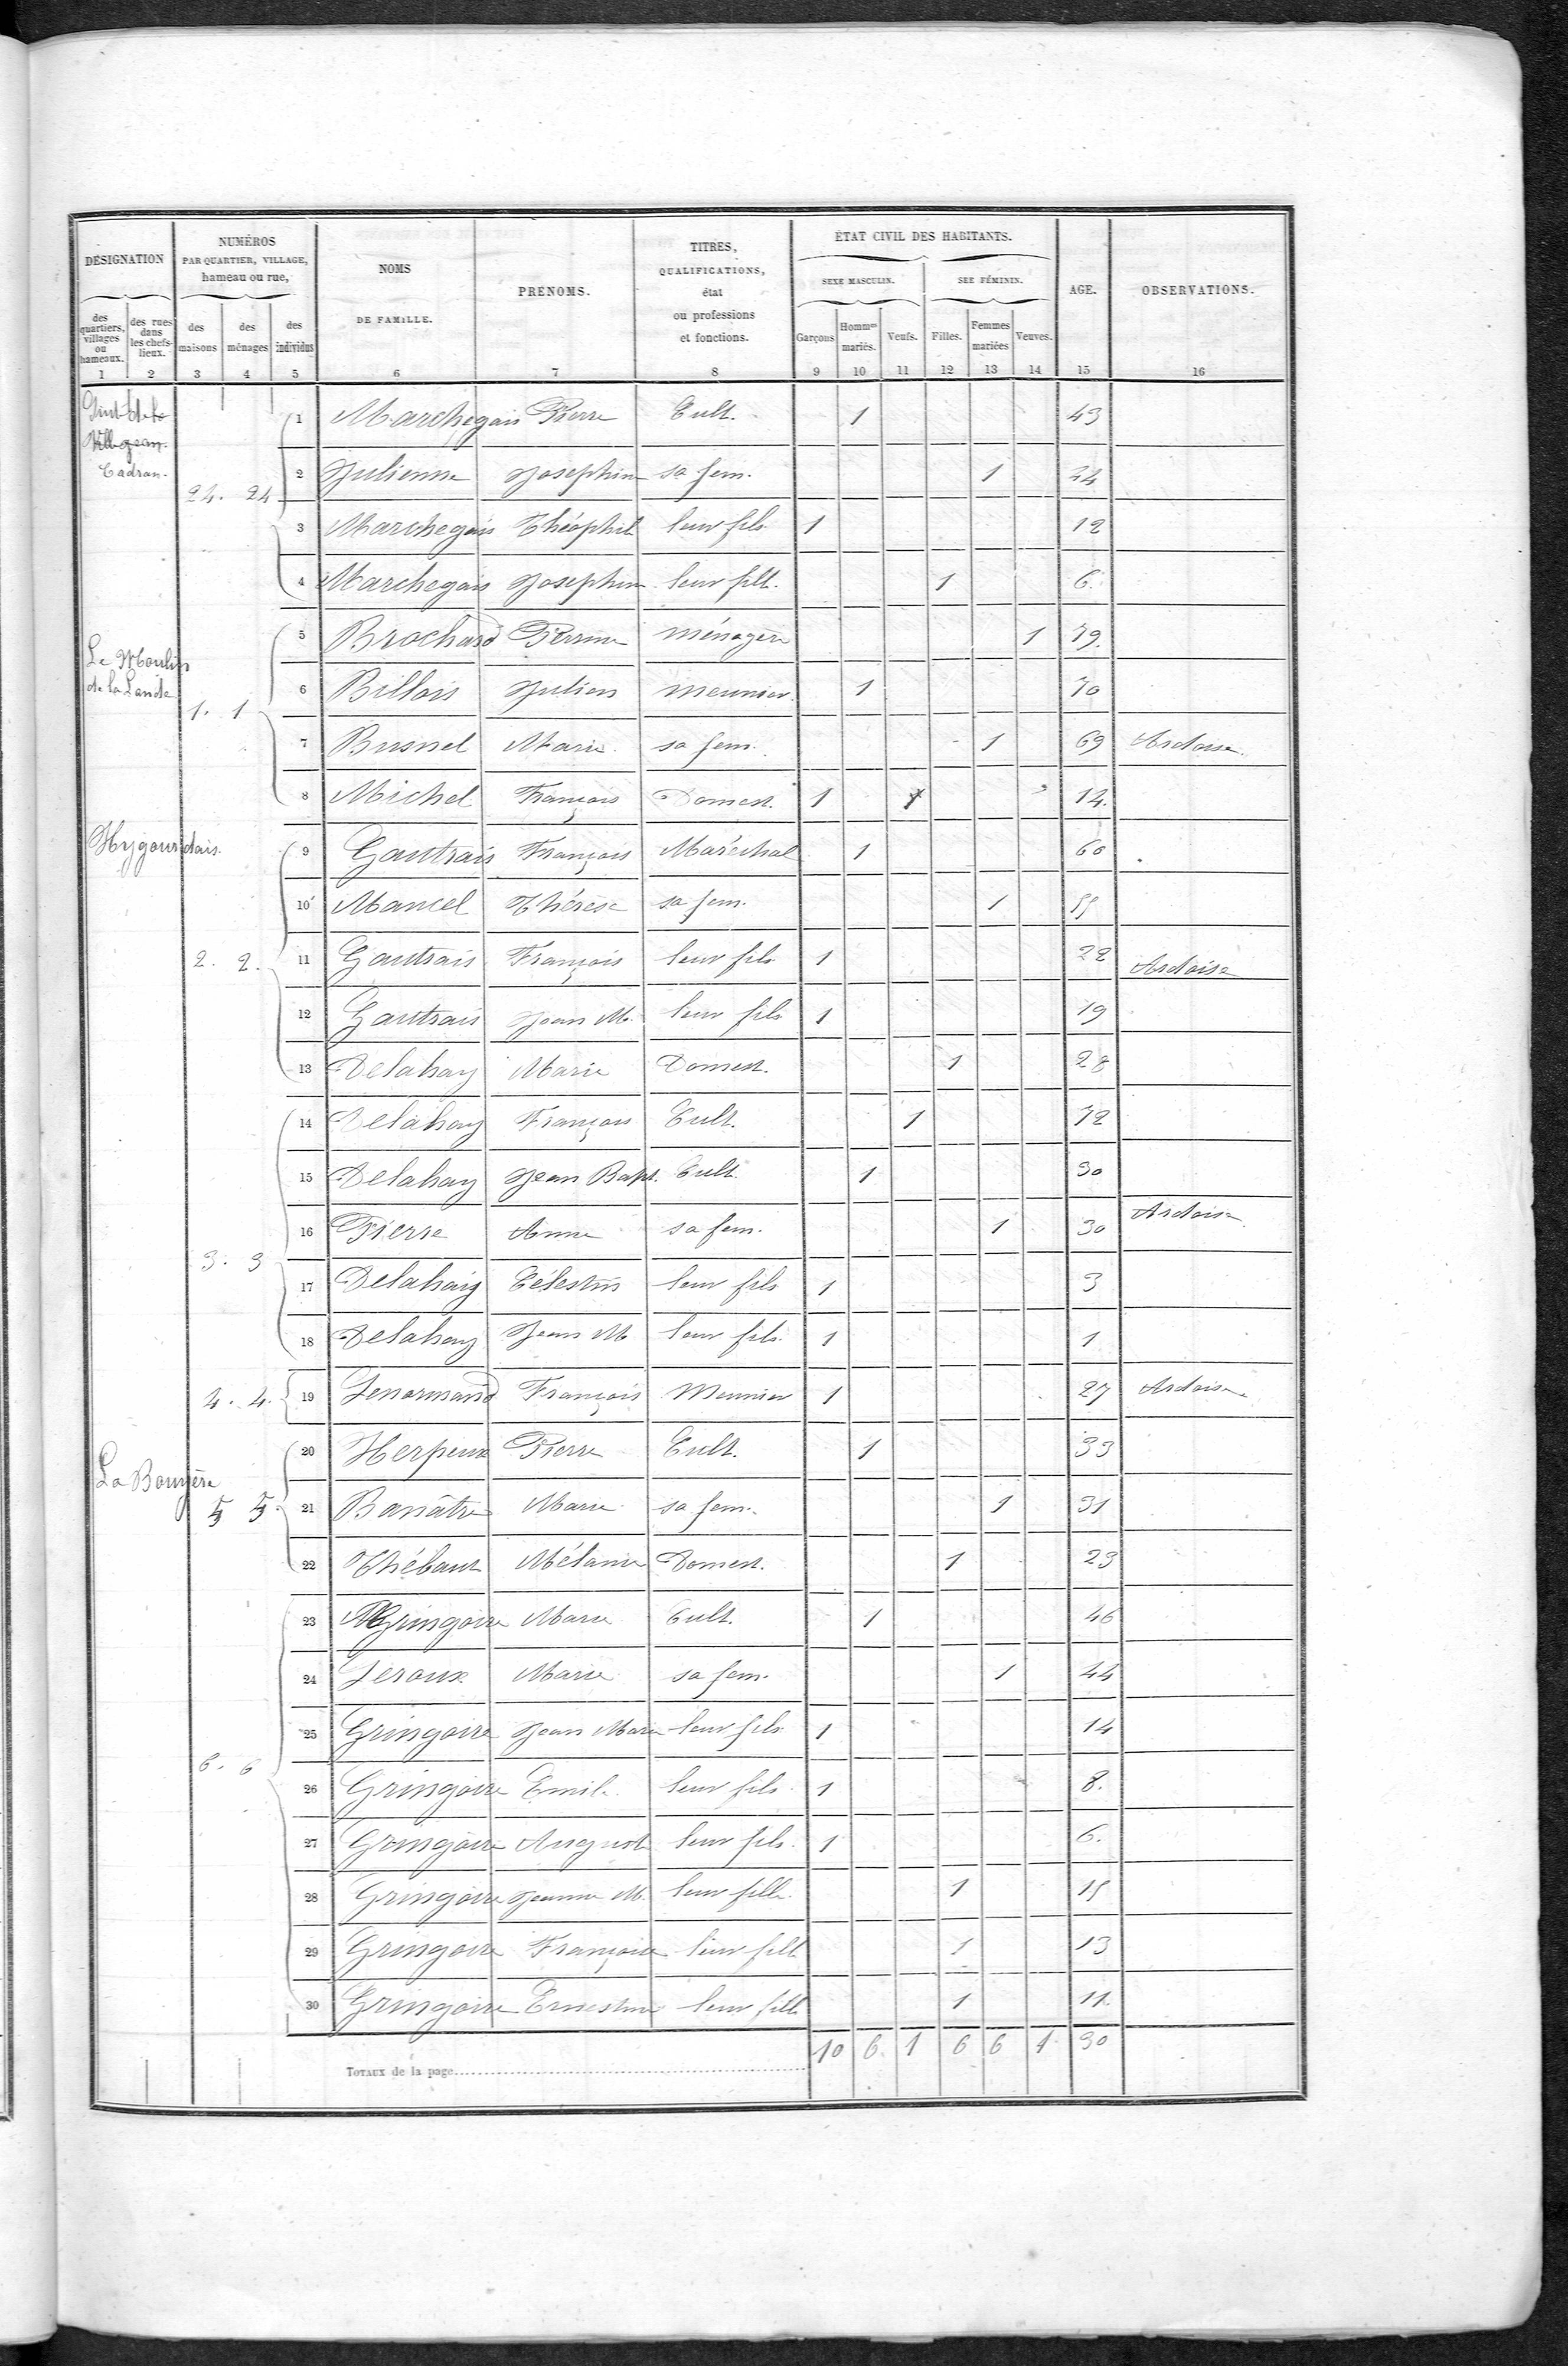 DÉSIGNATION
NUMÉROS
PAR QUARTIER, VILLAGE,
hameau ou rue,
NOMS
DE FAMILLE.
PRÉNOMS.
TITRES,
QUALIFICATIONS,
état
ou professions
et fonctions.
ÉTAT CIVIL DES HABITANTS.
SEXE MASCULIN.
SEE FÉMININ.
AGE.
OBSERVATIONS.
des quartiers, villages ou hameaux.
des rues dans les chefs-lieux.
des maisons
des ménages
des individus
Garçons
Hommes mariés.
Veufs.
Filles.
Femmes mariées
Veuves.
1 2 3 4 5 6 7 8 9 10 11 12 13 14 15 16
Cadran.
24. 24
1 Marchegais Pierre Cult. 1 43
2 Julienne Josephine sa fem. 1 44
3 Marchegais Théophile leur fils 1 12
4 Marchegais Josephine leur fille 1 6.
Le Moulin
de la Lande
1. 1
5 Brochard Perrine ménagère 1 79.
6 Billois Julien meunier 1 70
7 Busnel Marie sa fem. 1 69 Ardoise.
8 Michel François Domest. 1 1 14.
Hygourdais.
2. 2.
9 Gautrais François Maréchal 1 60
10 Mancel Thérèse sa fem. 1 55
11 Gautrais François leur fils 1 22 Ardoise
12 Gautrais Jean M. leur fils 1 19
13 Delahay Marie Domest. 1 28
3. 3
14 Delahay François Cult. 1 72
15 Delahay Jean Bapt. Cult. 1 30
16 Pierre Anne sa fem. 1 30 Ardoise
17 Delahay Célestin leur fils 1 3
18 Delahay Jean M leur fils 1 1
4. 4.
19 Lenormand François Meunier 1 27 Ardoise
La Bouyère
5 5
20 Herpeux Pierre Cult. 1 33
21 Banâtre Marie sa fem. 1 31
22 Thébaut Mélanie Domest. 1 23
6. 6
23 Gringoire Marie Cult. 1 46
24 Leroux Marie sa fem. 1 44
25 Gringoire Jean Marie leur fils 1 14
26 Gringoire Emile leur fils 1 8.
27 Gringoire August leur fils. 1 6.
28 Gringoire Jeanne M. leur fille. 1 15
29 Gringoire Françoise leur fille 1 13
30 Gringoire Ernestine leur fille 1 11.
TOTAUX de la page 10 6. 1 6 6 1 30